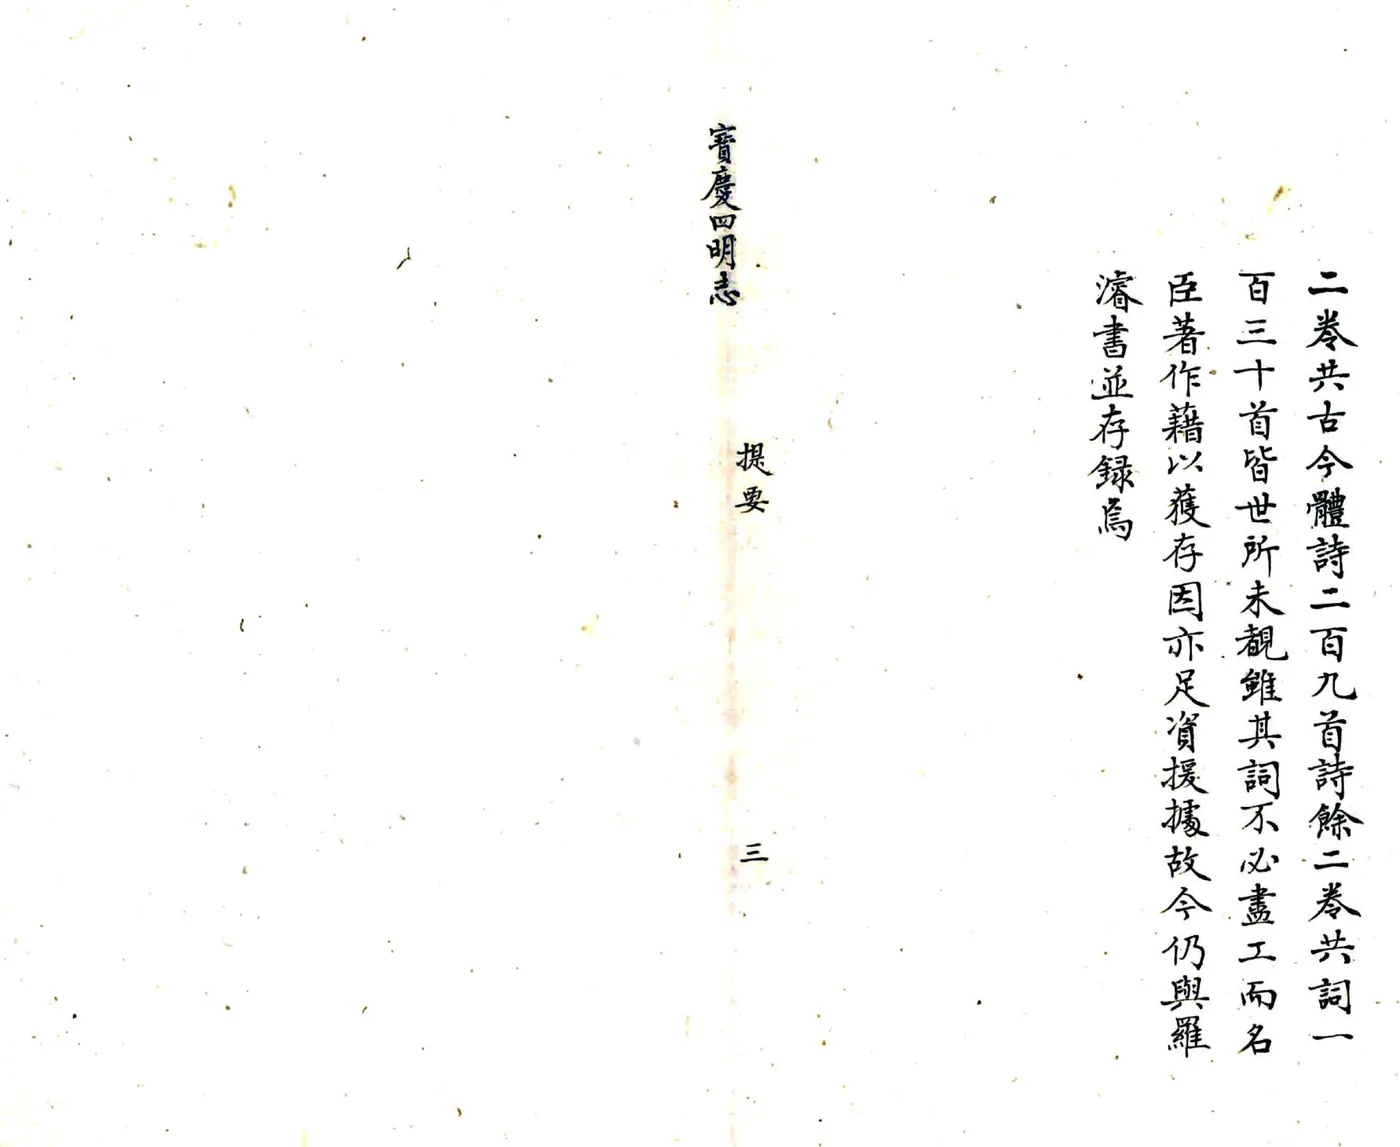 二卷共古今體詩二百九首詩餘二卷共詞一
百三十首皆世所未覩雖其詞不必盡工而名
臣著作藉以獲存因亦足資援據故今仍與羅
濬書並存録焉
寳慶四明志
提要
三